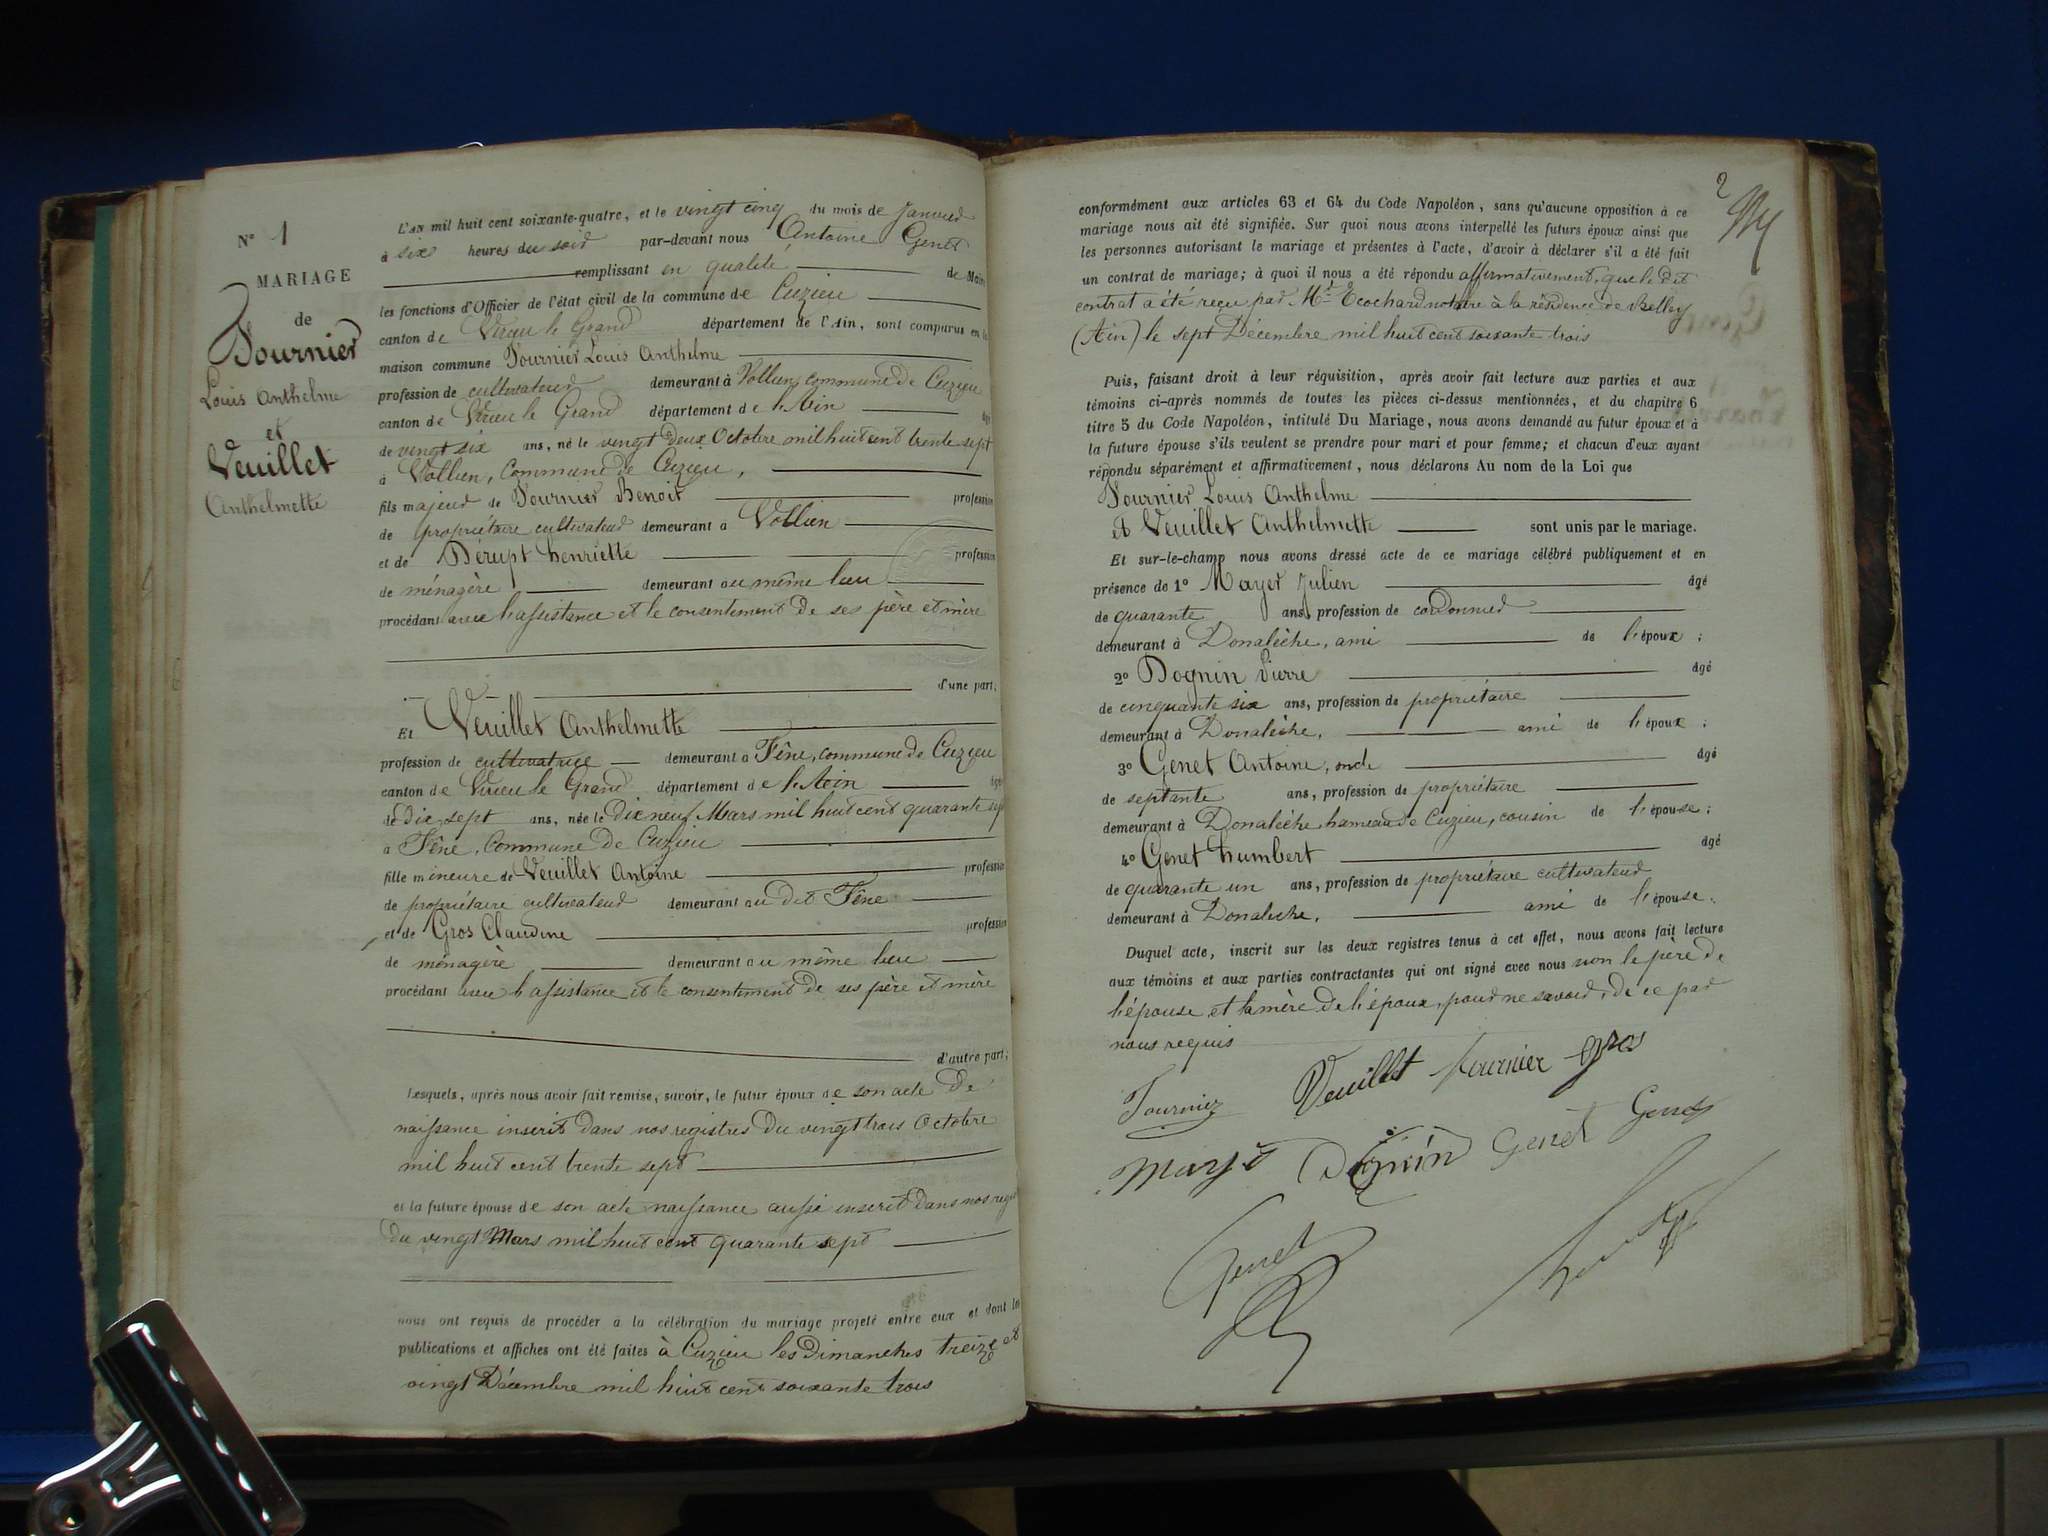 N° 1
MARIAGE
de
Fournier
Louis Anthelme
et
Veuillet
Anthelmette
L'AN mil huit cent soixante-quatre, et le vingt cinq du mois de Janvier
à six heures du soir par-devant nous Antoine Genet
remplissant en qualité de Maire
les fonctions d'Officier de l'état civil de la commune de Cuzieu
canton de Virieu le Grand département de l'Ain, sont comparus en la
maison commune Fournier Louis Anthelme
profession de cultivateur demeurant à Vollien, commune de Cuzieu
canton de Virieu le Grand département de l'Ain âgé
de vingt six ans, né le vingt deux Octobre mil huit cent trente sept
à Vollien, Commune de Cuzieu,
fils majeur de Fournier Benoit profession
de propriétaire cultivateur demeurant à Vollien
et de Dérupt henriette profession
de ménagère demeurant au même lieu
procédant avec l'assistance et le consentement de ses père et mère
d'une part;
Et Veuillet Anthelmette
profession de cultivatrice demeurant à Fêne, commune de Cuzieu
canton de Virieu le Grand département de l'Ain âgée
de dix sept ans, née le dix neuf Mars mil huit cent quarante sept
à Fêne, Commune de Cuzieu
fille mineure de Veuillet Antoine profession
de propriétaire cultivateur demeurant au dit Fêne
et de Gros Claudine profession
de ménagère demeurant au même lieu
procédant avec l'assistance et le consentement de ses père et mère
d'autre part;
Lesquels, après nous avoir fait remise, savoir, le futur époux de son acte de
naissance inscrit dans nos registres du vingt trois Octobre
mil huit cent trente sept
et la future épouse de son acte naissance aussi inscrit dans nos regis
du vingt Mars mil huit cent quarante sept
nous ont requis de procéder à la célébration du mariage projeté entre eux et dont les
publications et affiches ont été faites à Cuzieu les Dimanches treize et
vingt Décembre mil huit cent soixante trois
2
conformément aux articles 63 et 64 du Code Napoléon, sans qu'aucune opposition à ce
mariage nous ait été signifiée. Sur quoi nous avons interpellé les futurs époux ainsi que
les personnes autorisant le mariage et présentes à l'acte, d'avoir à déclarer s'il a été fait
un contrat de mariage; à quoi il nous a été répondu affirmativement, que le dit
contrat a été reçu par Me Ecochard notaire à la résidence de Belley
(Ain) le sept Décembre mil huit cent soixante trois
Puis, faisant droit à leur réquisition, après avoir fait lecture aux parties et aux
témoins ci-après nommés de toutes les pièces ci-dessus mentionnées, et du chapitre 6
titre 5 du Code Napoléon, intitulé Du Mariage, nous avons demandé au futur époux et à
la future épouse s'ils veulent se prendre pour mari et pour femme; et chacun d'eux ayant
répondu séparément et affirmativement, nous déclarons Au nom de la Loi que
Fournier Louis Anthelme
et Veuillet Anthelmette sont unis par le mariage.
Et sur-le-champ nous avons dressé acte de ce mariage célébré publiquement et en
présence de 1° Mayer Julien âgé
de quarante ans, profession de cordonnier
demeurant à Donalèche, ami de l'époux;
2° Dognin Pierre âgé
de cinquante six ans, profession de propriétaire
demeurant à Donalèche, ami de l'époux;
3° Genet Antoine, oncle âgé
de septante ans, profession de propriétaire
demeurant à Donalèche hameau de Cuzieu, cousin de l'épouse;
4° Genet humbert âgé
de quarante un ans, profession de propriétaire cultivateur
demeurant à Donalèche, ami de l'épouse.
Duquel acte, inscrit sur les deux registres tenus à cet effet, nous avons fait lecture
aux témoins et aux parties contractantes qui ont signé avec nous non le père de
l'épouse et la mère de l'époux, pour ne savoir, de ce par
nous requis
Fournier Veuillet fournier gros
Dognin Genet Genet
Genet